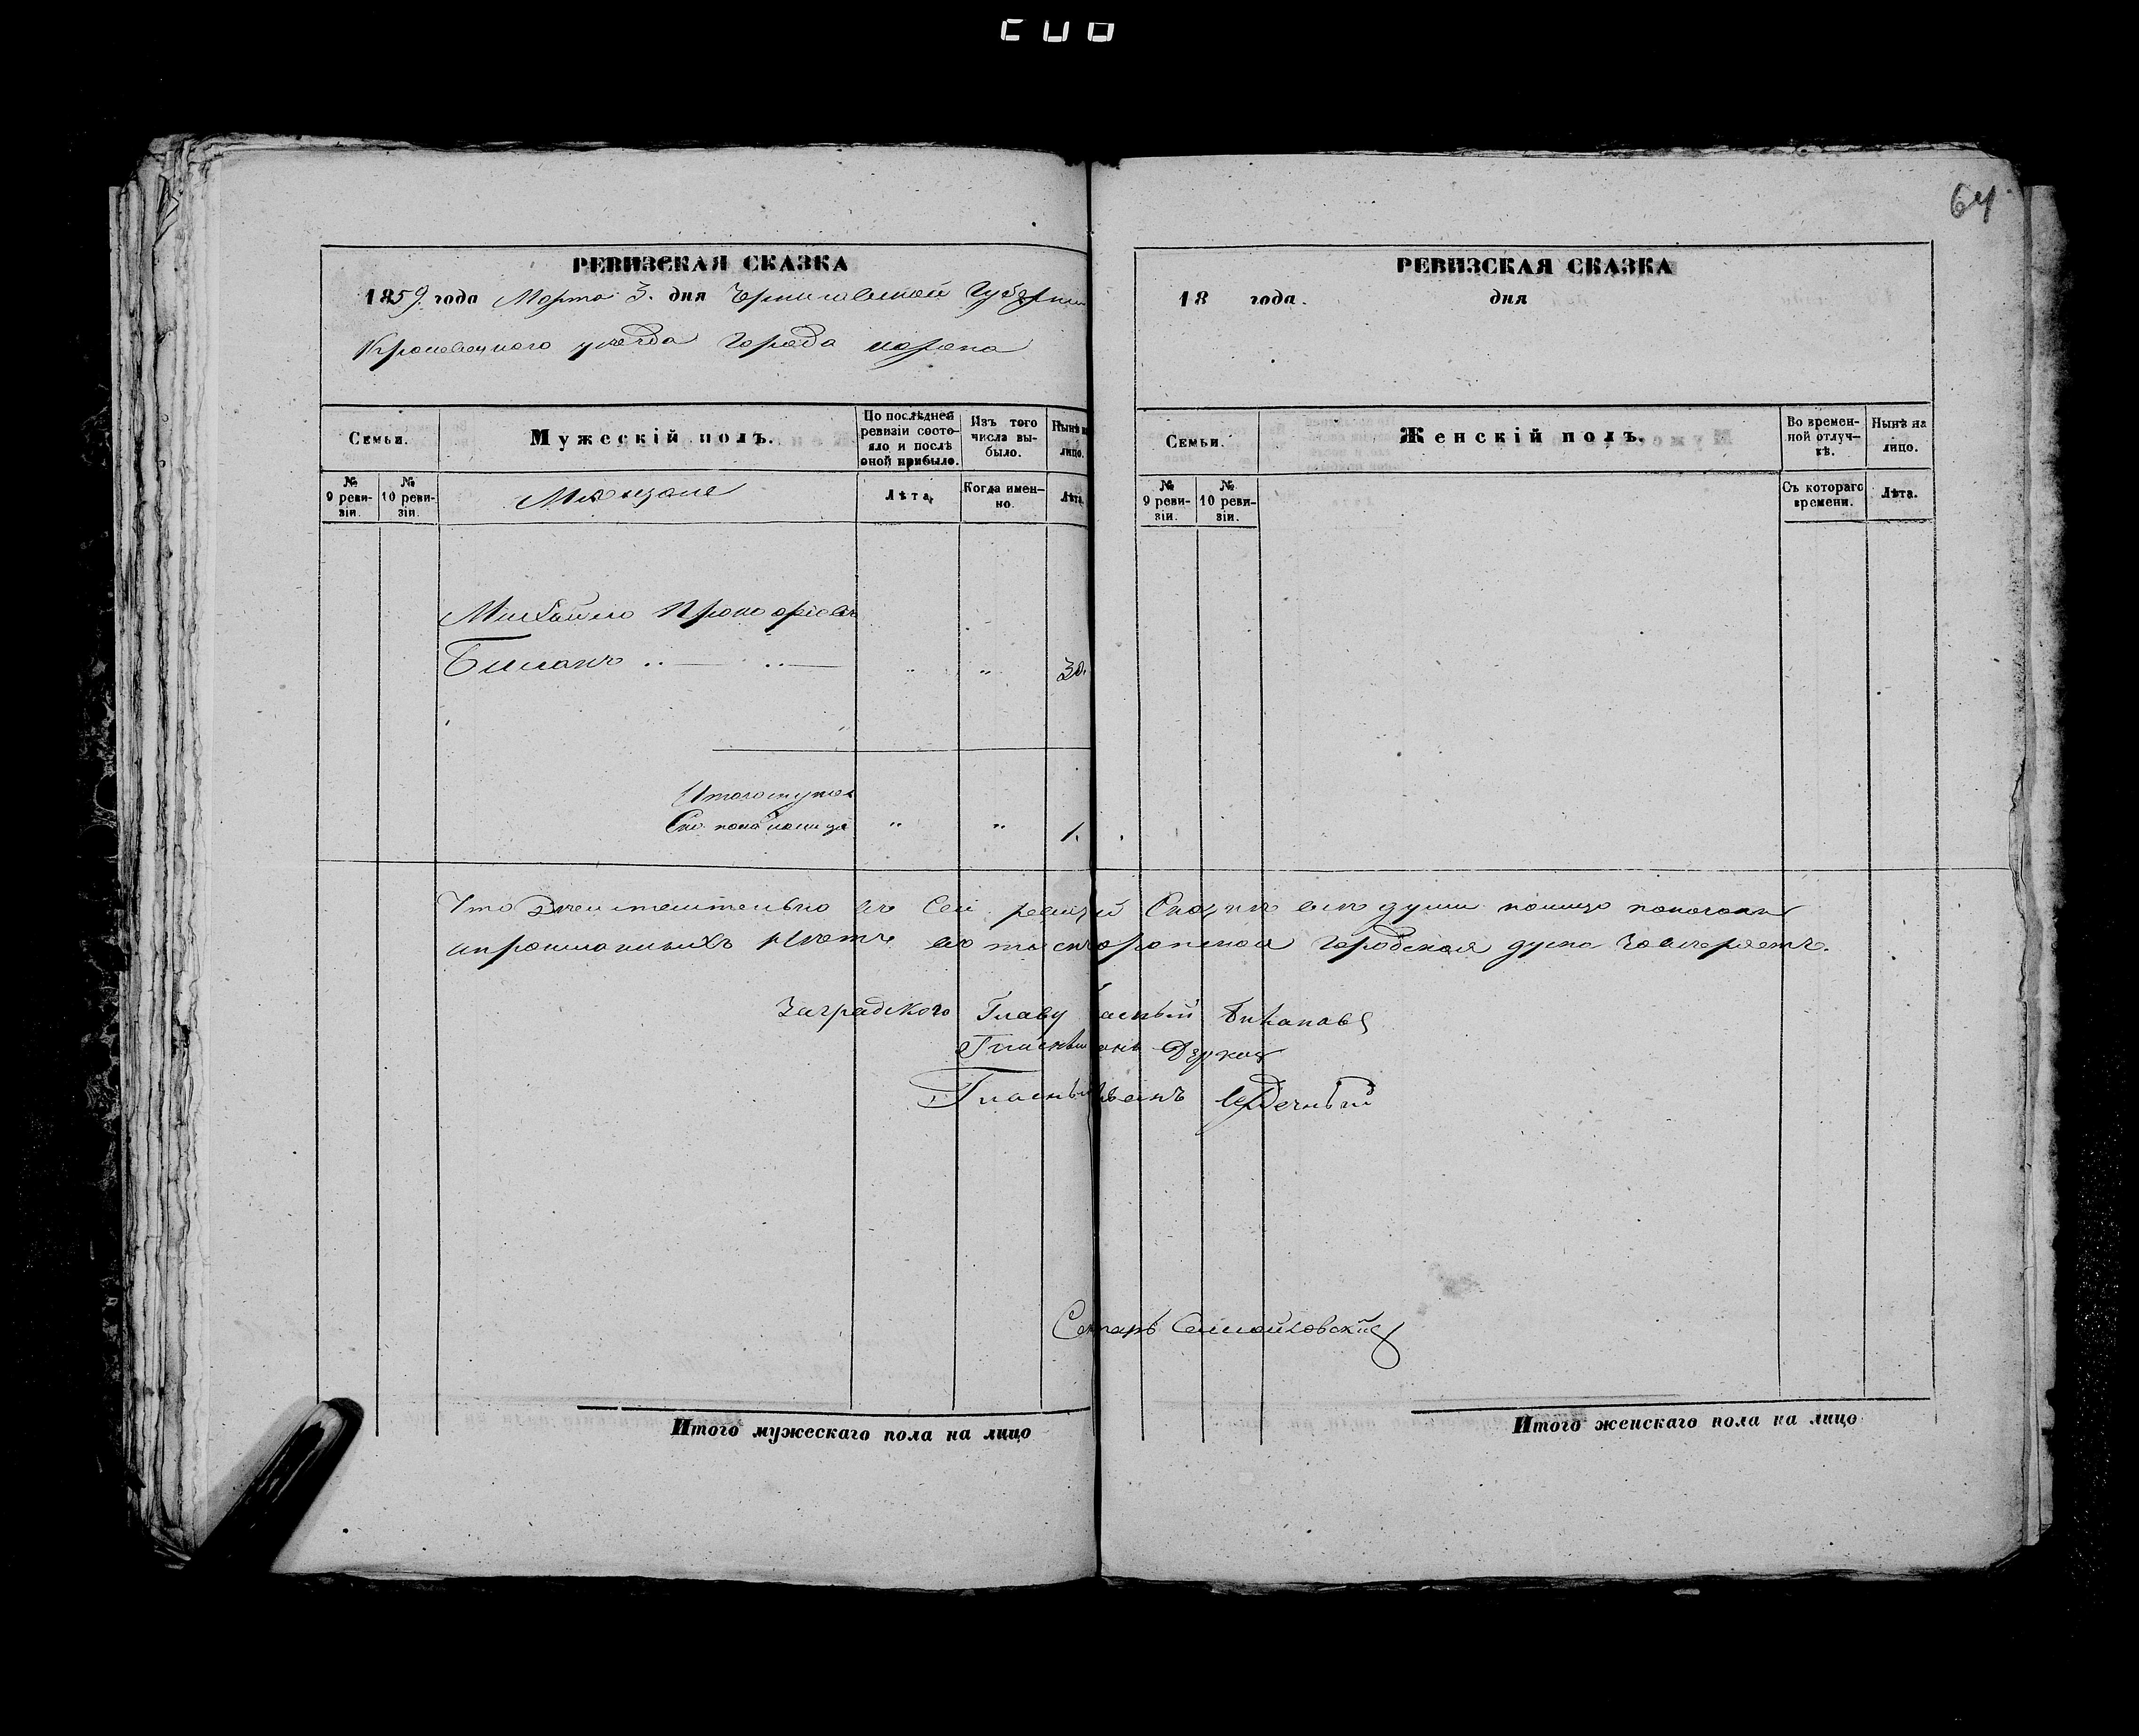 64
РЕВИЗСКАЯ СКАЗКА
1859 года Марта 3. дня Черниговской Губерни
Кролевецкого уезда Города Коропа
Семьи.
Мужескій полъ.
По послѣдней ревизіи состояло и послѣ оной прибыло.
Изъ того числа выбыло.
Нынѣ на лицо.
№ 9 ревизіи.
№ 10 ревизіи.
Мещане
Лѣта.
Когда именно.
Лѣта.
Михайло Прокофіевъ
30.
Итого мужеска
пола налицо 1.
РЕВИЗСКАЯ СКАЗКА
18 года. дня
Семьи.
Женскій полъ.
Во временной отлучкѣ.
Нынѣ на лицо.
№ 9 ревизіи.
№ 10 ревизіи.
Съ котораго времени.
Лѣта.
Что действительно въ сей ревизкой Сказке все души налицо показаны
и пропущенныхъ нетъ въ томъ Коропская Городская дума заверяетъ.
Заградского Главу Гласный
Гласный
Гласный Иванъ
Итого мужескаго пола на лицо
Итого женскаго пола на лицо